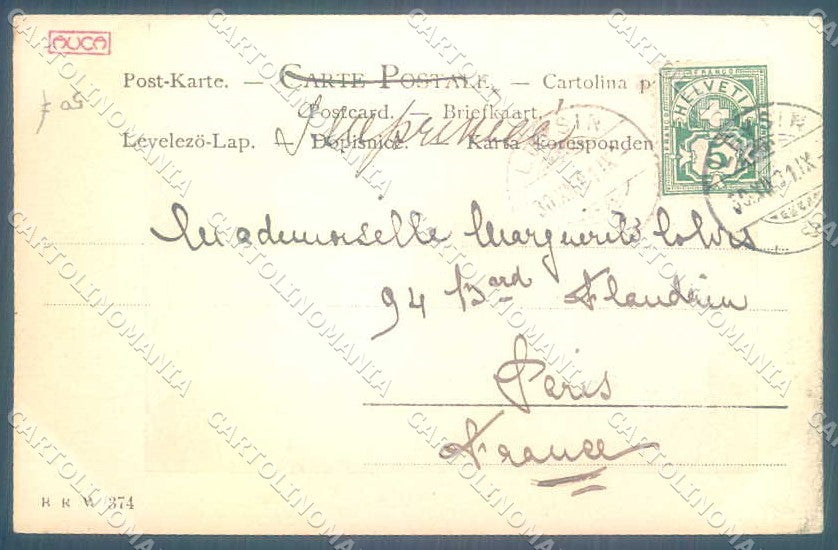 AUCA
Post-Karte. — CARTE POSTALE. — Cartolina p
Postcard. — Briefkaart.
Levelezö-Lap. — Dopisnice. — Karta korespondén
FRANCO
HELVETIA
5
Mademoiselle Marguerite
94 Bard Flandrin
Paris
France
R R W 374
CARTOLINOMANIA